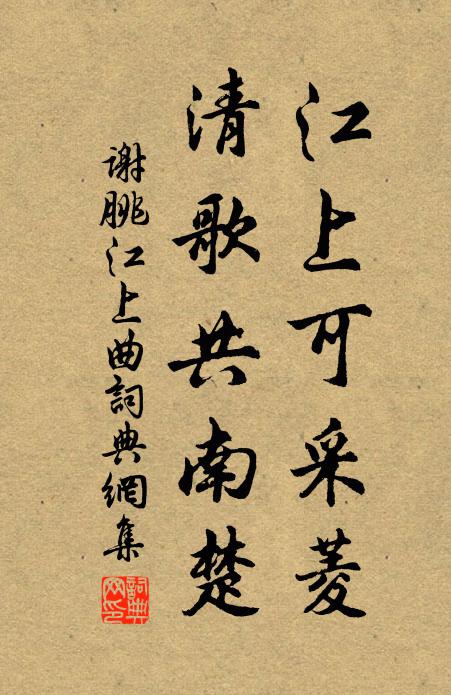 江上可采菱
清歌共南楚
谢朓江上曲詞典網集
詞典网印